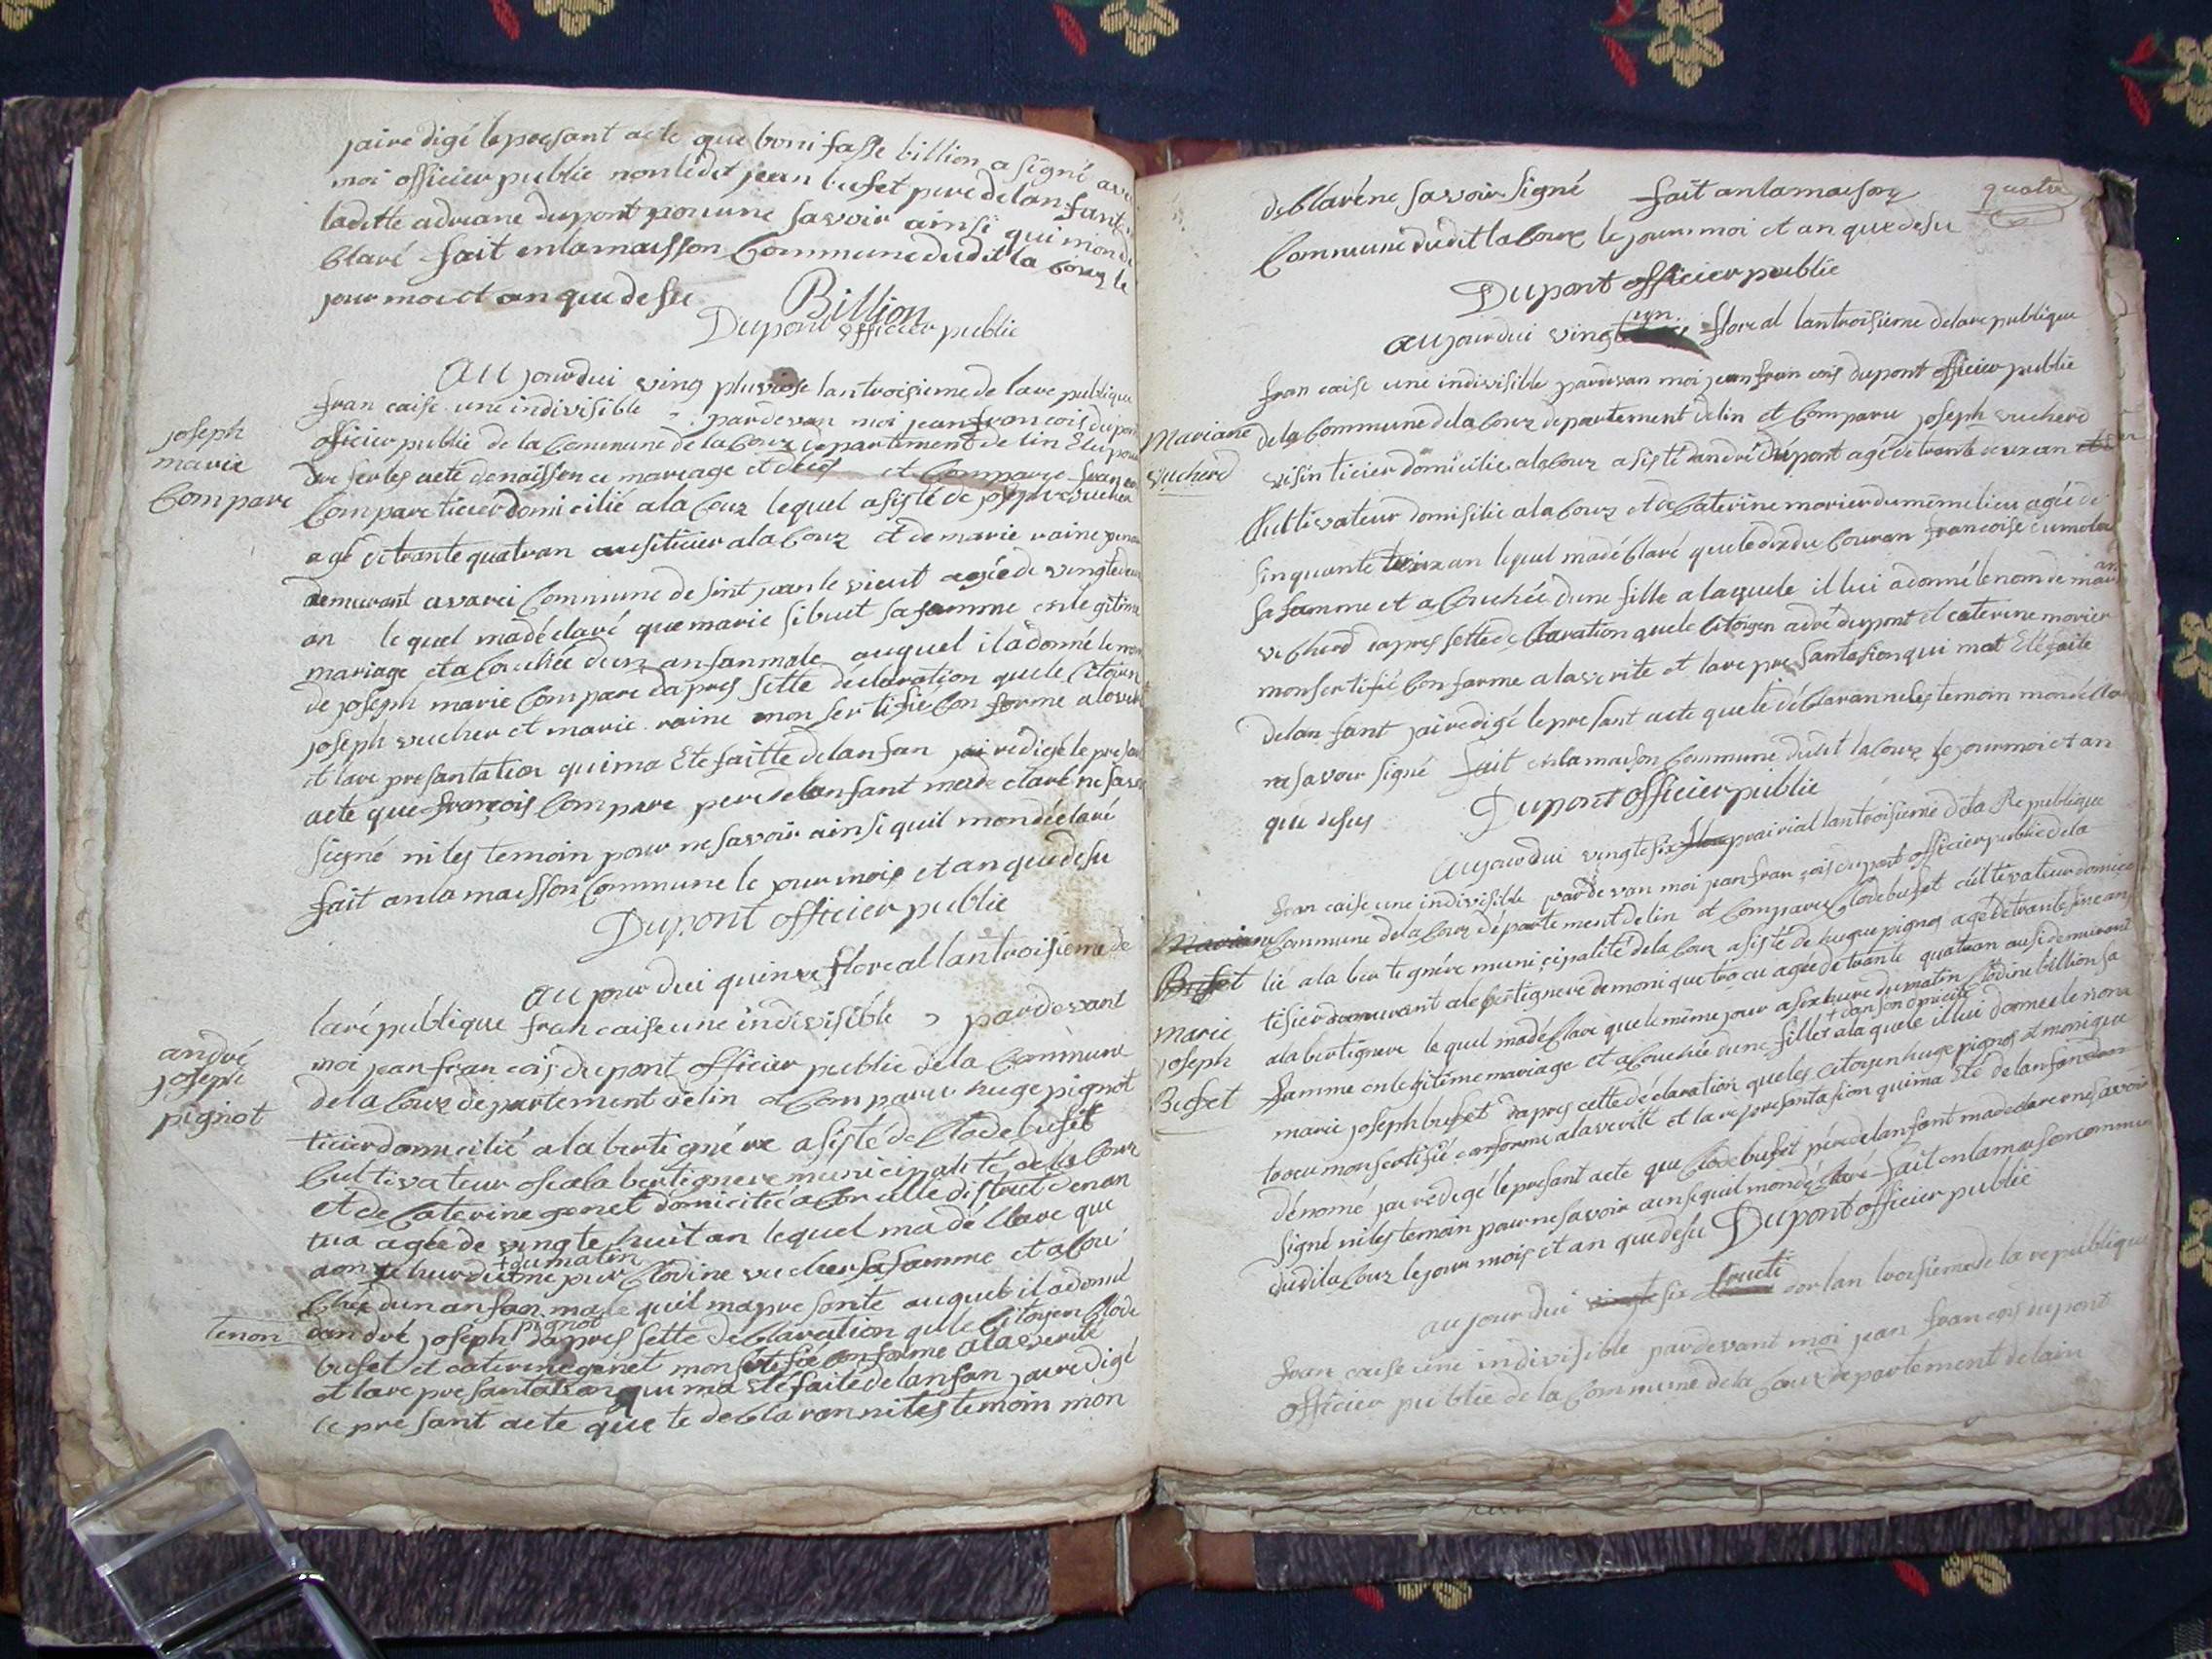 jaire digé le presant acte que boni fasse billion a signé avec
moi officier public non ledit jean bufet pere delanfant
laditte adriane dupont pour une savoir ainsi qui mon dé
blaré fait enlamaisson Commune dudit la Couz le
jour moi et an que desu
Billion
Dupont officier public
Au jourdui ving pluviose lantroisieme de lare publique
fran caise une indivisible pardevan moi jean francois dupont
joseph
marie
Compare
officier public de la Commune de la Couz departement de lin Elu pour
dre ser les acte de naissence mariage et déces et Comparu francois
Compare ticier domicilié ala Couz lequel asisté de joseph vucher
agé de trante quatran ausi ticier ala Couz et de marie raine
demeurant avarei Commune de sint jean le vieut agée de vingtedeux
an lequel madéclaré que marie sibuet sa famme enlegitime
mariage et a Couchée dun anfan male auquel il a donné le nom
de joseph marie Compare dapres sette déclaration que le Citoien
joseph vucher et marie raine mon sertifié Con forme a la veri
et lare presantation qui ma Eté faitte delanfan jai redigé le presan
acte que françois Compare pere delanfant ma declaré ne savoir
signé ni les temoin pour ne savoir ainsi quil mon déclaré
fait anla maisson Commune le jour mois et an que desu
Dupont officier public
au jour dui quinze floreal lantroisieme de
laré publique fran caise une indivisible pardevant
andré
joseph
pignot
moi jean fran cois dupont officier public de la Commune
de la Couz departement delin et Comparu huge pignot
ticier domicilié ala bertignére asisté de Clode bufet
Cultivateur ala bertignere municipalité de la Couz
et de Caterine genet domicilié a district denan
tua agée de vingte huit an lequel ma dé Claré que
+ du matin
Clodine vucher sa famme et a Cou
chée dun anfan male quil ma pre sante auquel il a doné
tenon
dandré joseph pignot dapres sette de Claration que le Citoyen Clode
bufet et caterine genet mon sertifié Con forme a la verité
et lare pre santation qui ma eté faite delanfan jai redigé
le pre sant acte que le de Claran ni les temoin mon
deblaré ne savoir signé fait anlamaison
quatre
Commune dudit la Couz le jour moi et an que desu
Dupont officier public
aujourdui vingt un floreal lantroisieme delare publique
fran caise une indivisible pardevan moi jean fran cois dupont officier public
Mariane
vucherd
de la Commune de la Couz departement delin et Comparu joseph vucherd
ticier domicilié ala Couz asisté dandré dupont agé de trante deux an
Cultivateur domisilié ala Couz et de Caterine morier du même lieu agée de
sinquante an lequel madé blaré que le dix du Couran francoise
sa famme et a Couchée dune fille a laquele il lui a donné le nom de mari
an
vucherd dapres sette de Claration que le Citoyen adré dupont et caterine morier
mon sertifié Con forme a la verite et lare pre santasion qui mat Eté faite
delan fant jai redigé le pre sant acte que le dé Claran ni les temoin mon déclaré
ne savoir signé fait enlamaison Commune dudit la Couz le jour moi et an
que desus
Dupont officier public
Aujourdui vingte six prairial lantroisieme de la Republique
fran caise une indivisible par de van moi jean fran cois dupont officier public de la
Mariane
Bufet
Commune de la Couz département delin et Comparu Clode bufet cultivateur domici
lié ala ber tignére municipalité de la Couz asisté de hugue pignot agé de trante an
marie
joseph
Bufet
tisier demeurant ale bertignere demonique trocu agée de trante quatran ausi demeurant
ala bertignere lequel madé Claré que le même jour a six hure du matin Clodine billion sa
famme enlegitime mariage et a Couchée dune fille + ala quele il lui donne le nom
marie joseph bufet dapres cette declaration que les Citoyen huge pignot et monique
trocu mon sertifié conforme a la verité et la represantasion qui ma Eté de lanfan
dénomé jai redigé le presant acte que Clode bufet pére delanfant ma declaré ne savoir
signé ni les temoin pour ne savoir ainsi quil mon dé Claré fait enlamaison commun
dudi la Couz le jour mois et an que desu Dupont officier public
aujour dui six fructi dor lan troisieme de la republique
fran caise une indivisible pardevant moi jean francois dupont
officier public de la Commune de la Couz departement delain